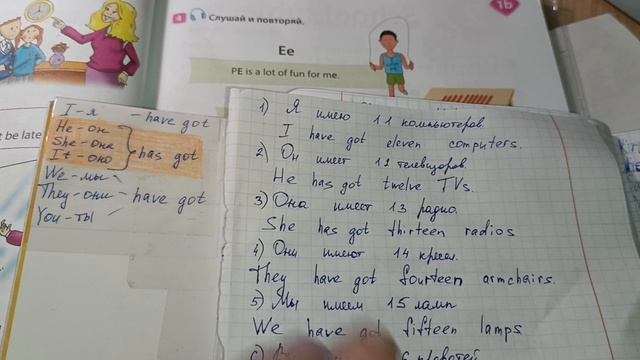 1b
4 Слушай и повторяй.
Ee
PE is a lot of fun for me.
t be late
I - я - have got
He - он
She - она
It - оно
has got
We - мы
They - они - have got
You - ты
1) Я имею 11 компьютеров.
I have got eleven computers.
2) Он имеет 12 телевизоров
He has got twelve TVs.
3) Она имеет 13 радио.
She has got thirteen radios
4) Они имеют 14 кресел.
They have got fourteen armchairs.
5) Мы имеем 15 ламп
We have got fifteen lamps
6)